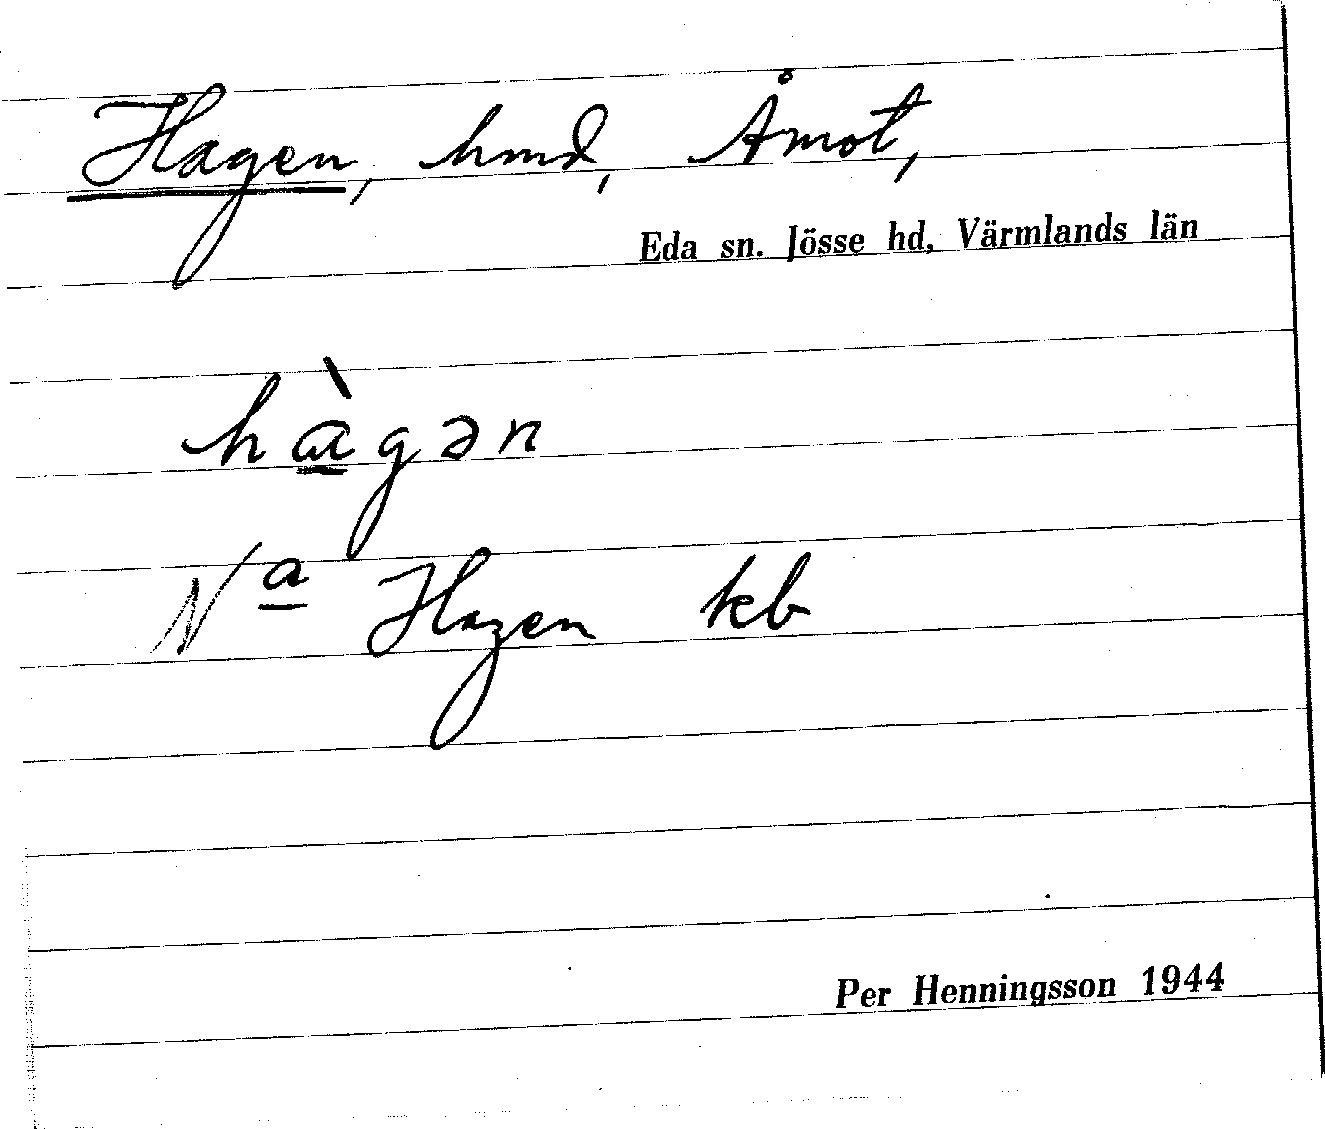 Hagen, hmd, Åmot,
Eda sn. Jösse hd, Värmlands län
hàgən
N a Hagen kb
Per Henningsson 1944